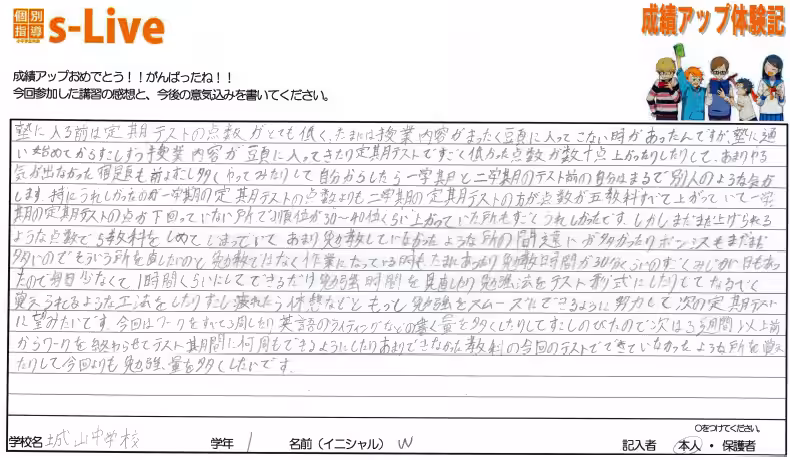 個別指導 s-Live
成績アップ体験記
成績アップおめでとう！！がんばったね！！
今回参加した講習の感想と、今後の意気込みを書いてください。
塾に入る前は定期テストの点数がとても低く、たまには授業内容がまったく頭に入ってこない時があったんですが、塾に通
い始めてから少しずつ授業内容が頭に入ってきたり定期テストですごく低かった点数が数十点上がったりしたりして、あまりやる
気が出なかった宿題も前より少し多くやってみたりして自分からしたら一学期と二学期のテスト前の自分はまるで別人のような気が
します。特にうれしかったのが一学期の定期テストの点数よりも二学期の定期テストの方が点数が五教科すべて上がっていて一学
期の定期テストの点が下回っていない所で順位が30〜40位くらい上がっていた所もすごくうれしかったです。しかしまだまだ上げられる
ような点数で5教科をしめてしまっていて、あまり勉強していなかったような所の間違いが多かったりポンミスもまだまだ
多いのでそういう所を直したいのと勉強ではなく作業になっている時もたまにあったり勉強時間が30分くらいのすくみじが日もあっ
たので毎日少なくて1時間くらいにしてできるだけ勉強時間を見直したり勉強法をテスト形式にしたりしてなるべく
覚えられるような工夫をしたり少し疲れたら休憩などともっと勉強をスムーズにできるように努力して次の定期テスト
に望みたいです。今回はワークをすべて3周したり英語のライティングなどの書く量を多くしたりして少しのびたので次は3週間以上前
からワークを終わらせてテスト期間に何周もできるようにしたりあまりできなかった教科の今回のテストでできていなかったような所を覚え
たりして今回よりも勉強量を多くしたいです。
〇をつけてください。
学校名 城山中学校 学年 1 名前（イニシャル） W 記入者 本人 ・ 保護者